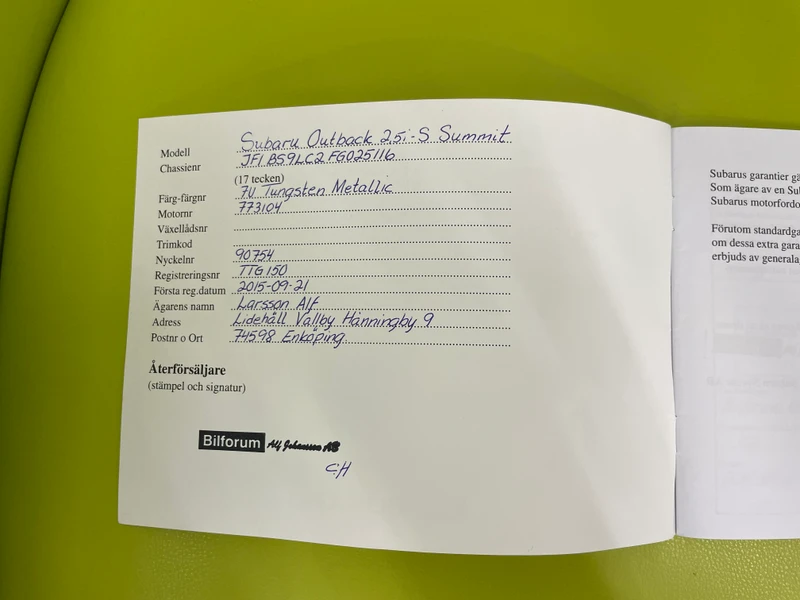 Modell Subaru Outback 2.5i-S Summit
Chassienr JF1BS9LC2FG025116
(17 tecken)
Färg-färgnr 7U Tungsten Metallic
Motornr 773104
Växellådsnr
Trimkod
Nyckelnr 90754
Registreringsnr TTG150
Första reg.datum 2015-09-21
Ägarens namn Larsson Alf
Adress Lidehäll Vallby Hänningby 9
Postnr o Ort 74598 Enköping
Återförsäljare
(stämpel och signatur)
Bilforum Alf Johansson AB
CH
Subarus garantier gä
Som ägare av en Sub
Subarus motorfordo
Förutom standardga
om dessa extra gara
erbjuds av generala